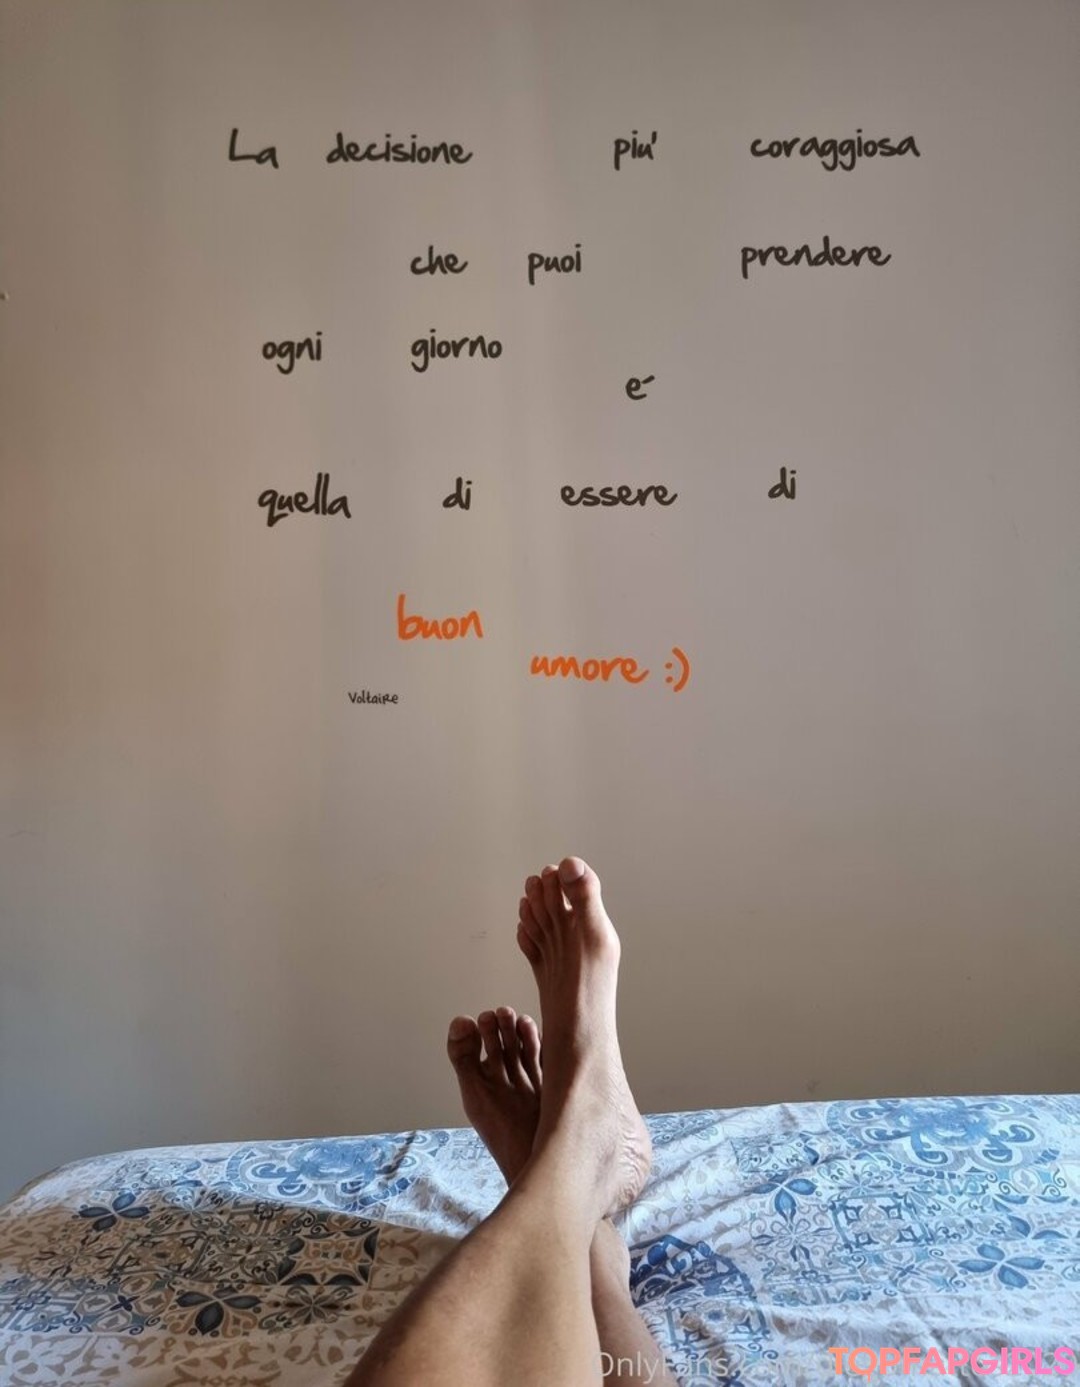 La decisione piu' coraggiosa
che puoi prendere
ogni giorno
e'
quella di essere di
buon
umore :)
Voltaire
TOPFAPGIRLS